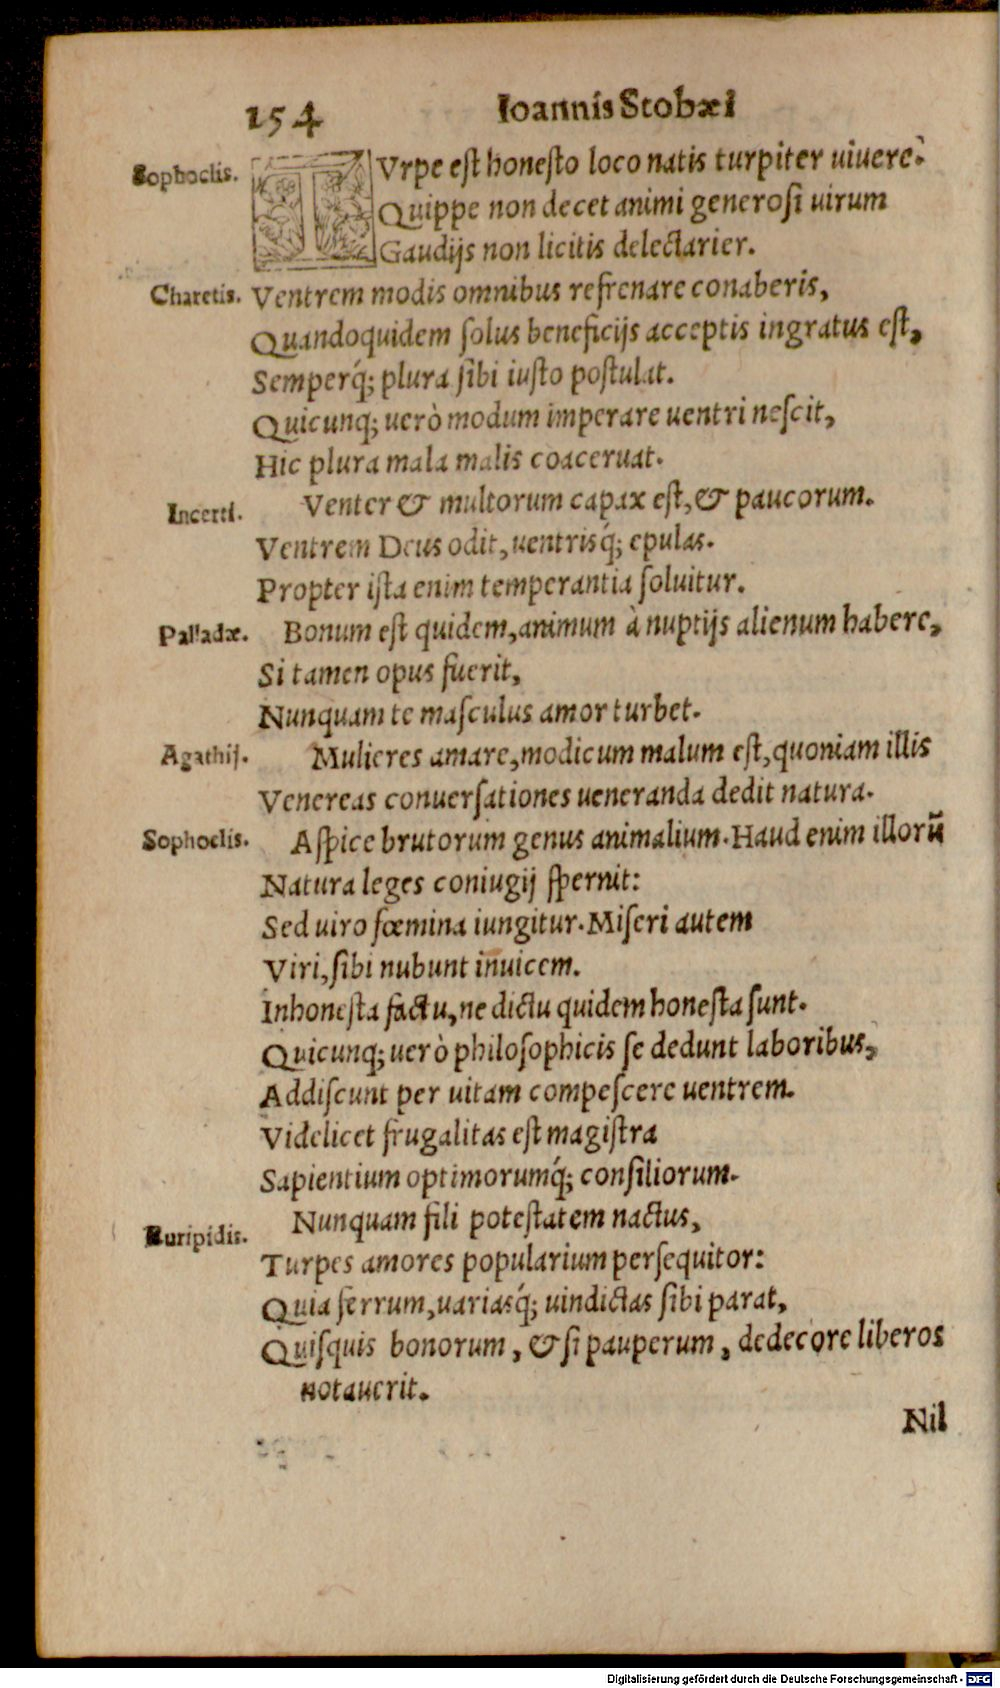 154 Ioannis Stobæi
Sophoclis. TVrpe est honesto loco natis turpiter uiuere.
Quippe non decet animi generosi uirum
Gaudijs non licitis delectarier.
Charetis. Ventrem modis omnibus refrenare conaberis,
Quandoquidem solus beneficijs acceptis ingratus est,
Semperq́; plura sibi iusto postulat.
Quicunq; uerò modum imperare uentri nescit,
Hic plura mala malis coaceruat.
Incerti. Venter & multorum capax est, & paucorum.
Ventrem Deus odit, uentrisq́; epulas.
Propter ista enim temperantia soluitur.
Palladæ. Bonum est quidem, animum à nuptijs alienum habere,
Si tamen opus fuerit,
Nunquam te masculus amor turbet.
Agathij. Mulieres amare, modicum malum est, quoniam illis
Venereas conuersationes ueneranda dedit natura.
Sophoclis. Aspice brutorum genus animalium. Haud enim illorū
Natura leges coniugij spernit:
Sed uiro fœmina iungitur. Miseri autem
Viri, sibi nubunt inuicem.
Inhonesta factu, ne dictu quidem honesta sunt.
Quicunq; uerò philosophicis se dedunt laboribus,
Addiscunt per uitam compescere uentrem.
Videlicet frugalitas est magistra
Sapientium optimorumq́; consiliorum.
Euripidis. Nunquam fili potestatem nactus,
Turpes amores popularium persequitor:
Quia ferrum, uariasq́; uindictas sibi parat,
Quisquis bonorum, & si pauperum, dedecore liberos
notauerit.
Nil
Digitalisierung gefördert durch die Deutsche Forschungsgemeinschaft - DFG